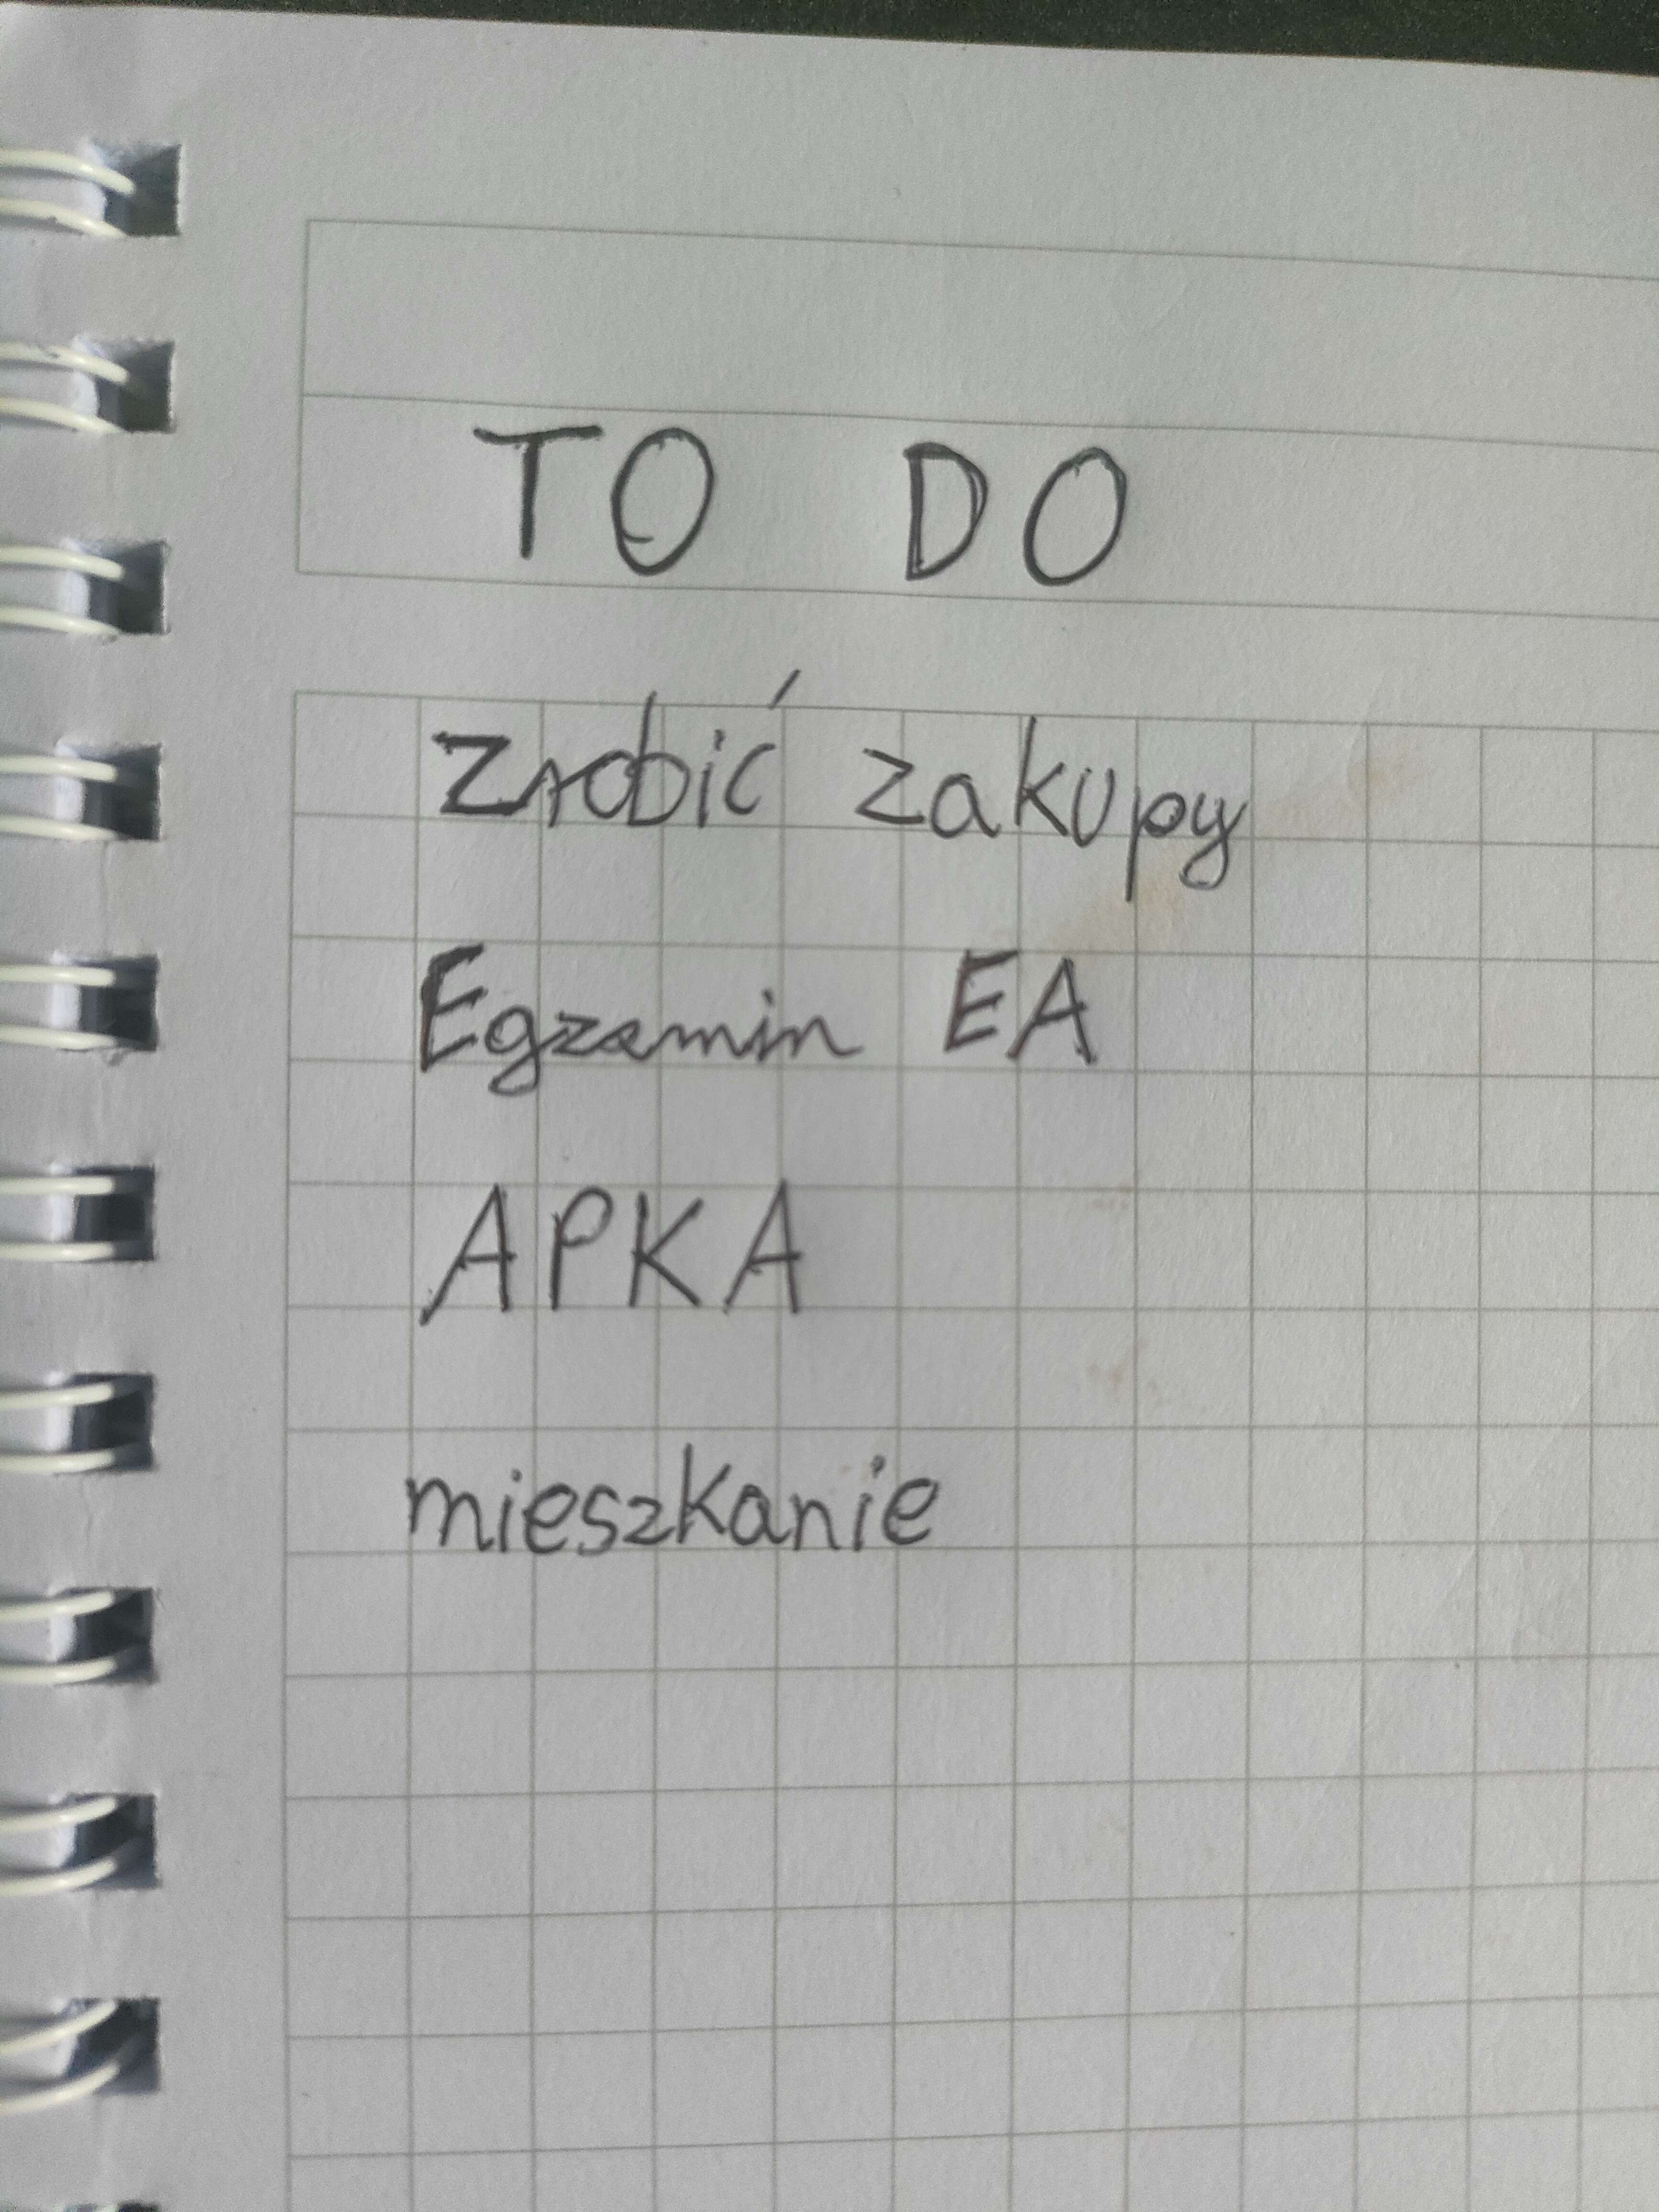 TO DO
Zrobić zakupy
Egzamin EA
APKA
mieszkanie